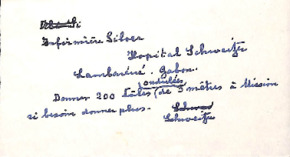 Infirmière Silver
Hopital Schweitzer
Lambaréné. Gabon.
ondulées
Donner 200 Tôles (de 3 mètres à Mission
si besoin donner plus.
Schweitzer